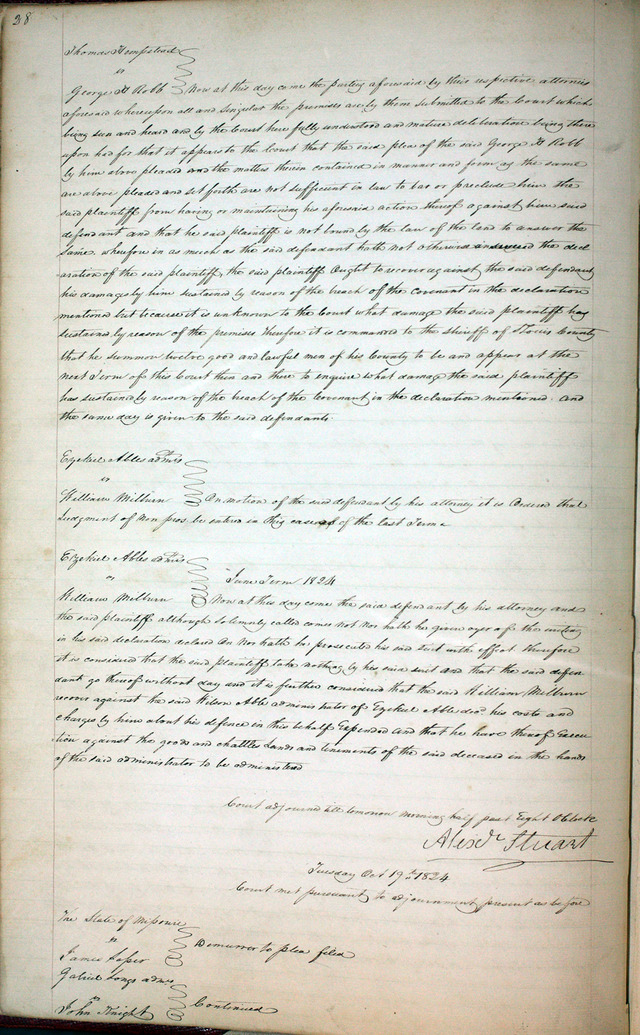 28
Thomas Hempstead
vs
George H Robb Now at this day come the parties aforesaid by their respective attornies
aforesaid whereupon all and singular the premises are by them submitted to the Court which
being seen and heard and by the Court here fully understood and mature deliberation being there
upon had for that it appears to the Court that the said plea of the said George H Robb
by him above pleaded and the matters therein contained in manner and form as the same
are above pleaded and set forth are not sufficient in law to bar or preclude him the
said plaintiff from having or maintaining his aforesaid action thereof against him said
defendant and that he said plaintiff is not bound by the law of the land to answer the
same. wherefore in as much as the said defendant hath not otherwise answered the decl
aration of the said plaintiff, the said plaintiff Ought to recover against the said defendant
his damages by him sustained by reason of the breach of the covenant in the declaration
mentioned but because it is unknown to the Court what damage the said plaintiff has
sustained by reason of the premises therefore it is commanded to the sheriff of St Louis County
that he summon twelve good and lawful men of his County to be and appear at the
next Term of this Court then and there to enquire what damage the said plaintiff
has sustained by reason of the breach of the Covenant in the declaration mentioned. and
the same day is given to the said defendants.
Ezekiel Ables admrs
vs
William Milburn On motion of the said defendant by his attorney it is Ordered that
Judgment of Non pros be entered in this case as of the last Term
Ezekiel Ables admrs
" June Term 1824
William Milburn Now at this day come the said defendant by his attorney and
the said plaintiff although Solemnly called comes not Nor hath he given oyer of the writing
in his said declaration declared On Nor hath he prosecuted his said Suit with effect therefore
it is considered that the said plaintiff take nothing by his said suit and that the said defen
dant go thereof without day and it is further considered that the said William Milburn
recover against the said Wilson Able administrator of Ezekiel Able decd his costs and
charges by him about his defence in this behalf Expended and that he have thereof Execu
tion against the goods and chattles Lands and tenements of the said deceased in the hands
of the said administrator to be administered
Court adjourned till tomorrow morning half past Eight Oclock
Alexdr Stuart
Tuesday Oct 19th 1824
Court met pursuant to adjournment present as before
The State of Missouri
vs
James Demurrer to plea filed
Gabriel Longs admrs
vs
John Knight Continued